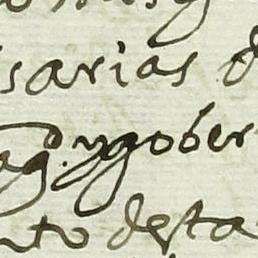 sarias d
agd. y gober
nto desta